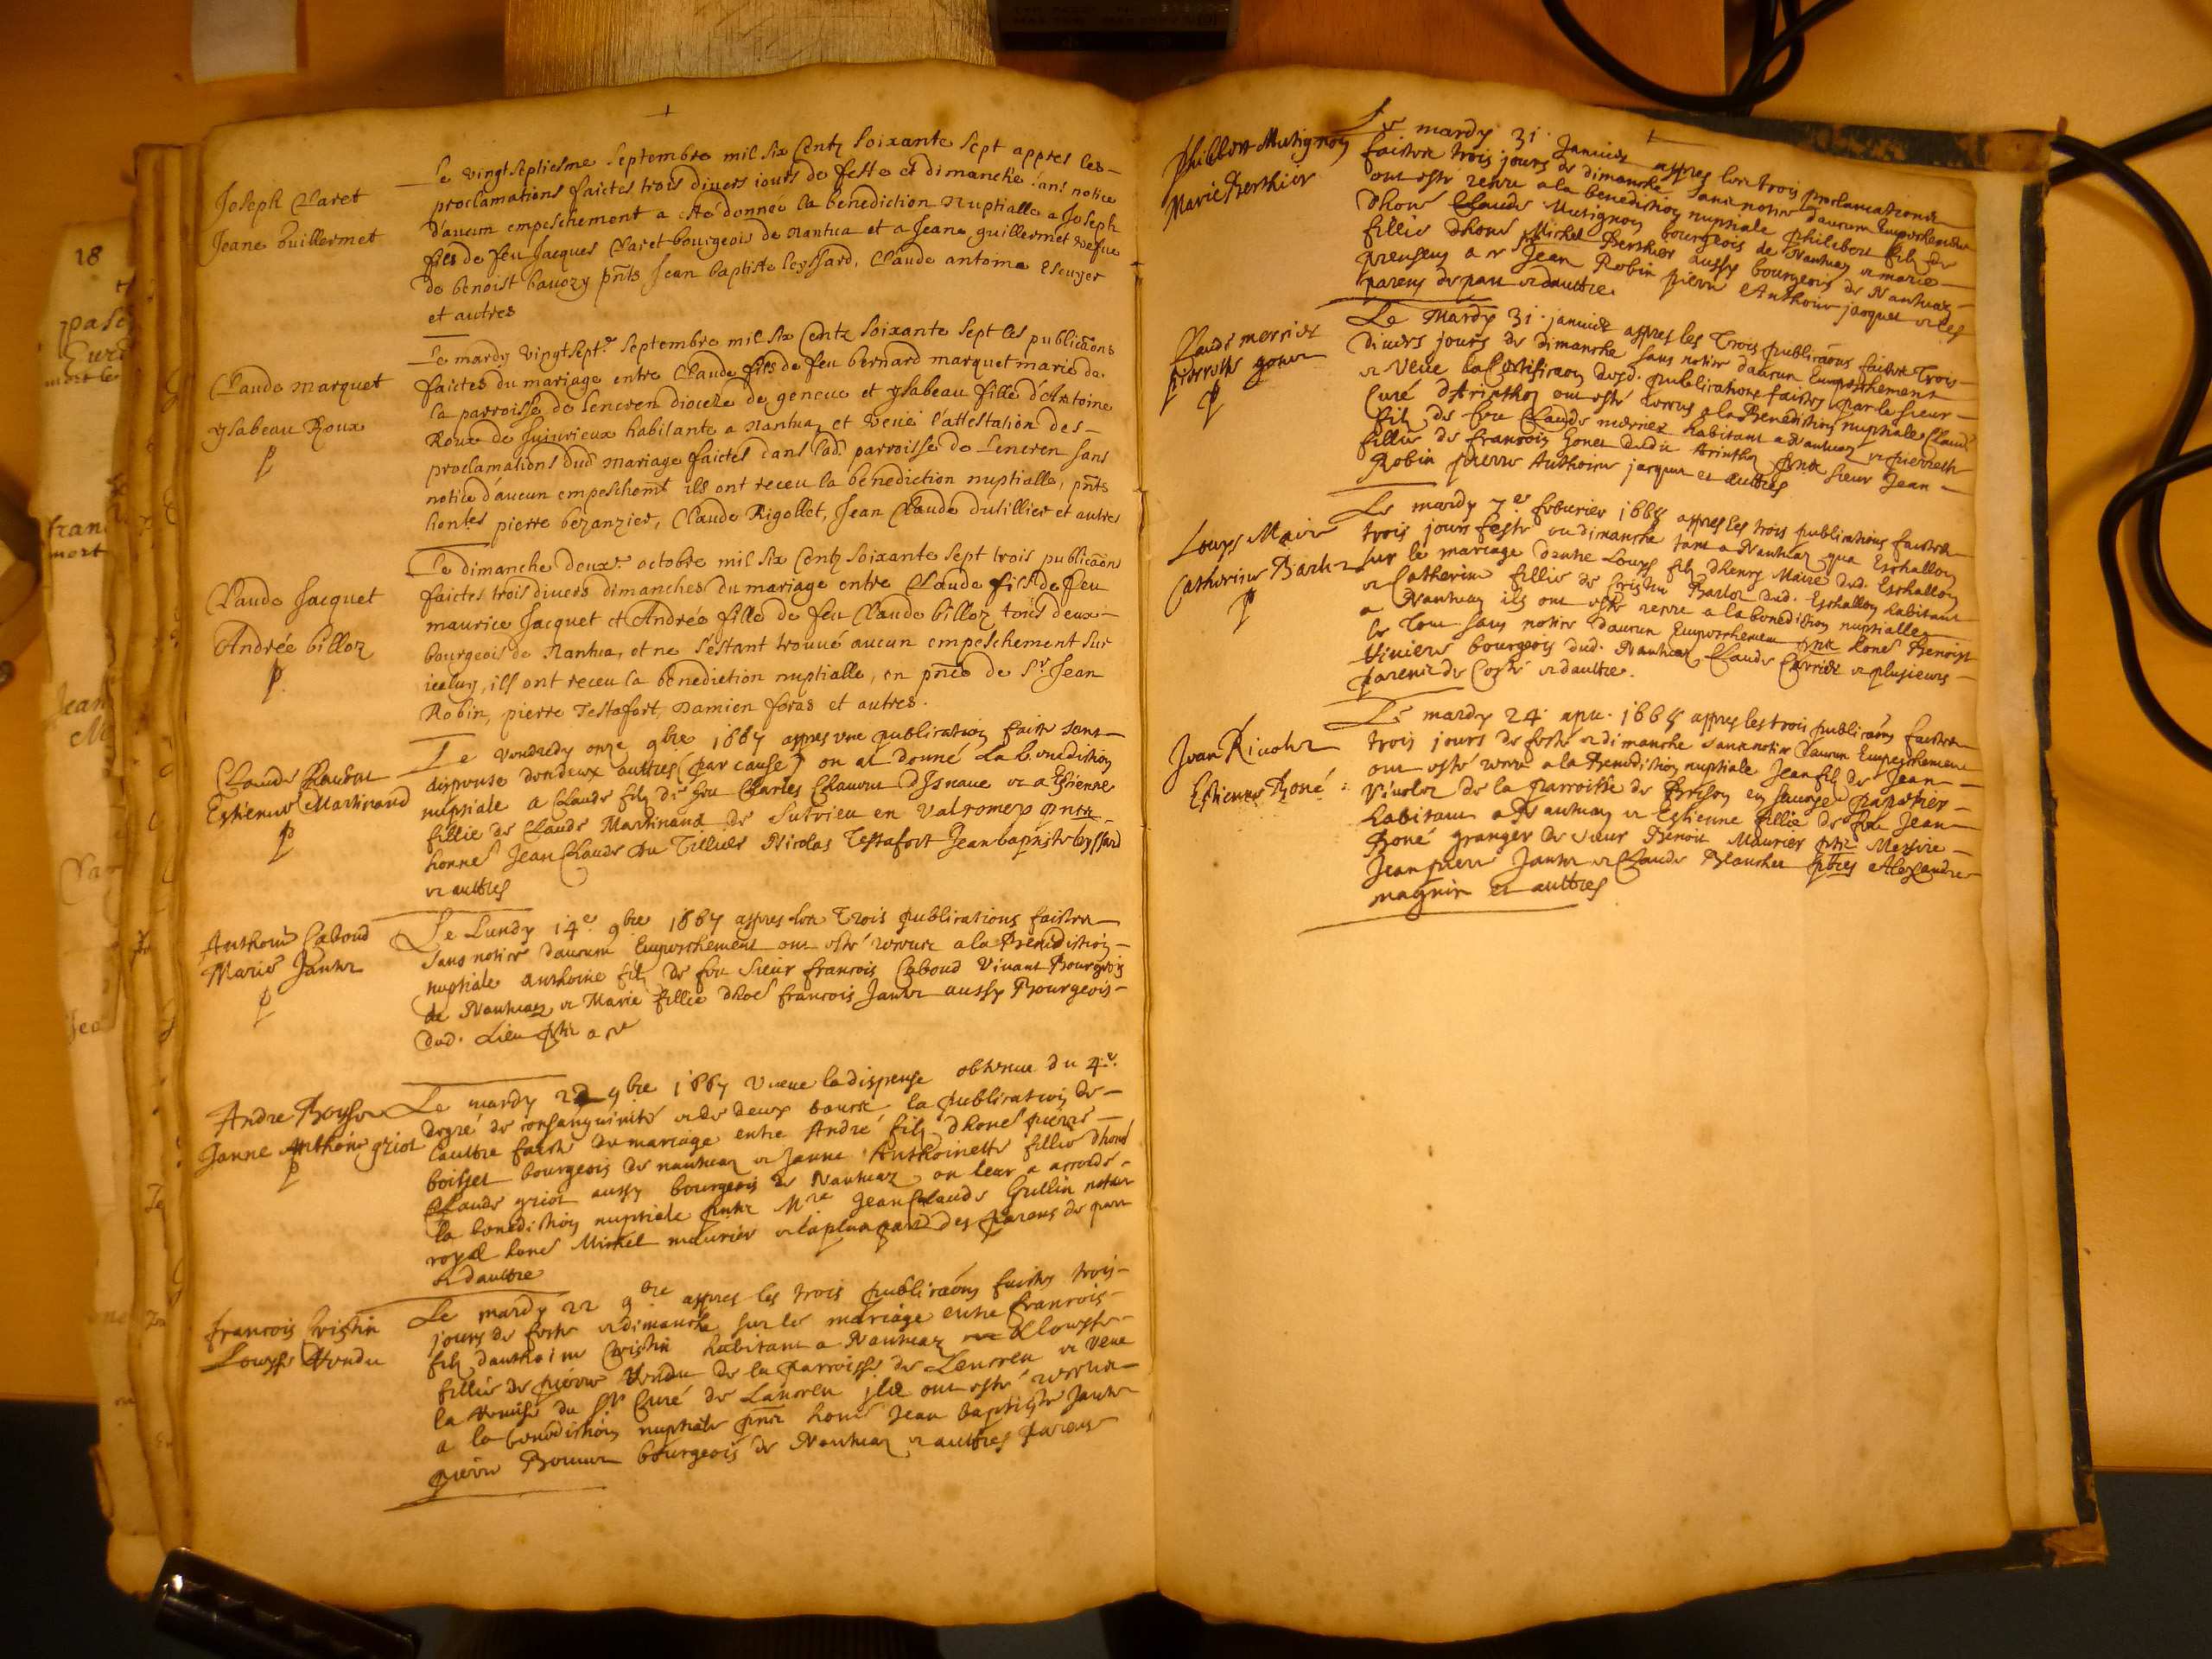 Joseph Claret
Jeane Guillermet
Le vingtseptiesme septembre mil six Centz soixante sept appres les
proclamations faictes trois divers iours de feste et dimanche sans notice
d'aucun empeschement a esté donnee la benediction nuptialle a Joseph
fils de feu Jacques Claret bourgeois de Nantua et a Jeane guillermet vefue
de benoist bauozy pnts Jean baptiste leyssard, Claude antoine Escuyer
et autres
Claude marquet
ysabeau Roux
p
Le mardy vingtsept.e septembre mil six Centz soixante sept les publicaons
faictes du mariage entre Claude fils de feu bernard marquet marie de
la parroisse de Lencren diocese de geneue et ysabeau fille d'Antoine
Roux de Juiurieux habitante a Nantua, et veüe l'attestation des
proclamations dud mariage faictes dans lad. parroisse de Lencren sans
notice d'aucun empeschemt ils ont receu la benediction nuptialle, pnts
hontes pierre bezanzier, Claude Rigollet, Jean Claude dutillier et autres
Claude Jacquet
Andrée billoz
p.
Le dimanche deuxe octobre mil six Centz soixante sept trois publicaons
faictes trois divers dimanches du mariage entre Claude fils de feu
maurice Jacquet et Andrée fille de feu Claude billoz tous deux
bourgeois de Nantua, et ne s'estant trouué aucun empeschement sur
iceluy, ils ont receu la benediction nuptialle, en pnce de Sr Jean
Robin, pierre Testafort, Damien foras et autres.
Estienne Martinand
p
Le vendredy onze 9bre 1667 appres vne publication faite sans
dispense des deux autres (par cause) on at donné La benediction
nuptiale a Claude filz de feu Charles Chauvin d'Isnave et a Estienne
fillie de Claude Martinand de Sutrieu en Valromey pnts
honnes Jean Claude Du Tillier Nicolas Testafort Jean baptiste leyssard
et aultres
Anthoine Caboud
Marie Jantet
p
Le Lundy 14.e 9bre 1667 appres les Trois publications faictes
sans notice daucun Empeschement ont esté receus a la Benediction
nuptiale anthoine filz de feu Sieur francois Caboud vivant Bourgeois
de Nantua et Marie fillie d'hoe francois Jantet aussy Bourgeois
dud. Lieu
Andre Boysset
Janne Anthoine griot
p
Le mardy 22 9bre 1667 Vueue la dispense obtenue du 4.e
degré de consanguinité et de deux bancs la publication de
laultre faicte du mariage entre André filz dhone pierre
boisset bourgeois de nantua et Janne Anthoinette fillie dhone
Claude griot aussy bourgeois de Nantua on leur a accordé
la benediction nuptiale pnts Mre Jean Claude Gullin notaire
royal hone Michel maurier et la plus part des parens de part
et daultre
francois Cristin
Lowyse Vendu
Le mardy 22 9bre appres les trois publicaons faictes trois
jours de feste et dimanche sur le mariage entre francois
filz danthoine Cristin habitant a Nantua et lowyse
fillie de pierre Vendu de la parroisse de Lencren et veue
la remise du Sr Curé de Lancren jlz ont esté receus
a la benediction nuptiale pnts hone Jean baptiste Jantet
pierre bourgeois de Nantua et aultres parens
Philibert Mutignon
Marie Berthier
Le mardy 31. Janvier appres les trois proclamations
faictes trois jours de dimanche sans notice daucun Empeschement
ont esté receu a la benediction nuptiale philibert filz de
dhone Claude Mutignon bourgeois de Nantua et marie
fillie dhone Michel Berthier aussy bourgeois de Nantua
presens a ce Sr Jean Robin pierre Anthoine jacquet et les
parens de part et daultre.
Claude mernier
pierrette gonet
p
Le Mardy 31. janvier appres les Trois publicaons faictes Trois
divers jours de dimanche sans notice daucun Empeschement
et Veue la Certificaon desd. publications faictes par le Sieur
Curé d'Arinthoz ont esté receus a la Benediction nuptiale Claude
filz de feu Claude mernier habitant a Nantua et pierrette
fillie de francois Gonet dudit Arinthoz pnts Sieur Jean
Robin pierre Anthoine jacquet et aultres
Lowys Maire
Catherine Barlet
p
Le mardy 7.e febvrier 1668 appres les trois publications faictes
trois jours feste ou dimanche tant a Nantua qua Eschallon
sur le mariage dentre Lowys filz dhenry Maire dud. Eschallon
et Catherine fillie de Barlet dud. Eschallon habitant
a Nantua ils ont esté receu a la benediction nuptialle
le Tout sans notice daucun Empeschement pnts hone Benoist
Viviers bourgeois dud. Nantua Claude Carrier et plusieurs
parens de Costé et daultre.
Jean Vivolet
Estienne Boné
Le mardy 24. apu. 1668 appres les trois publicaons faictes
trois jours de feste et dimanche sans notice daucun Empeschement
ont esté receu a la Benediction nuptiale Jean filz de Jean
Vivolet de la parroisse de Brison en Savoye papetier
habitant a Nantua et Estienne fillie de feu Jean
Boné granger de sieur Benoit Maurier pnts Messire
Jean pierre Jantet et Claude Blanchet pbres Alexandre
magnin et aultres